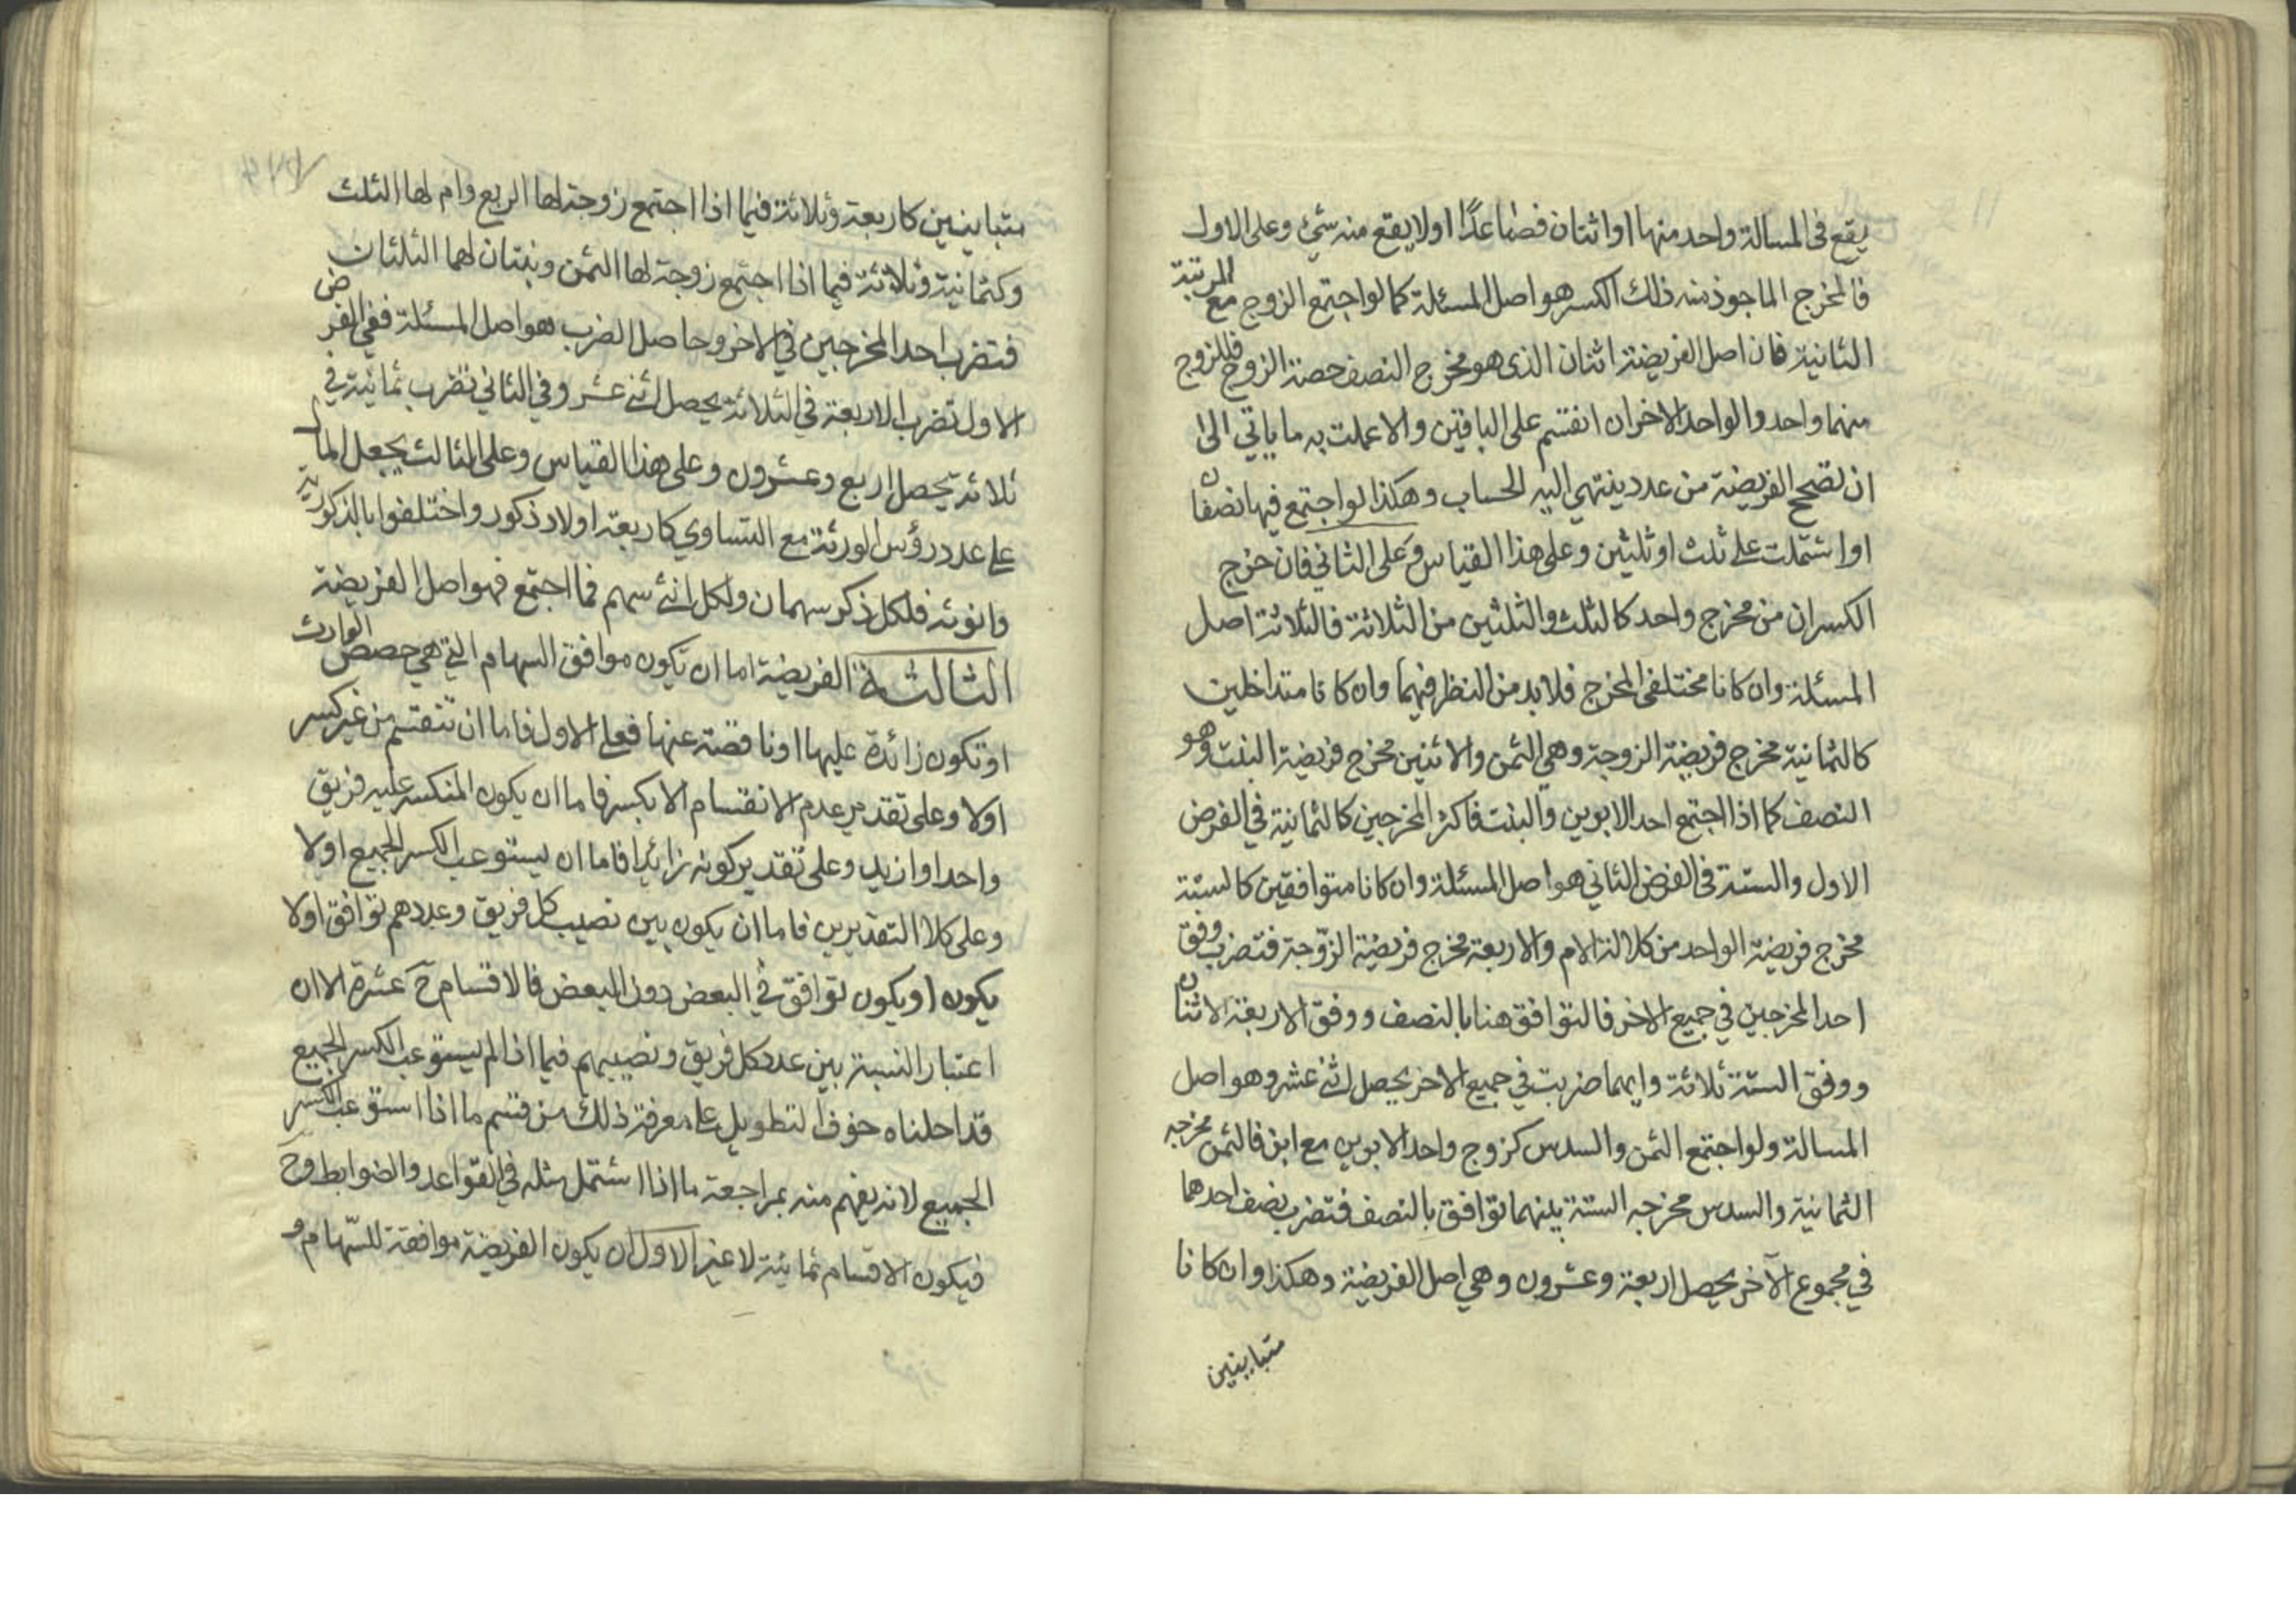 يقع في المسالة واحد منها او اثنان فصاعدًا او لا يقع منه شئ وعلى الاول
فالمخرج الماخوذ منه ذلك الكسر هو اصل المسئلة كما لو اجتمع الزوج مع المرتبة
الثانية فان اصل الفريضة اثنان الذى هو مخرج النصف حصة الزوج فللزوج
منهما واحد والواحد الاخر ان انقسم على الباقين والا عملت به ما ياتي الى
ان تصحح الفريضة من عدد ينتهي اليه الحساب وهكذا لو اجتمع فيها نصفان
او اشتملت على ثلث او ثلثين وعلى هذا القياس وعلى الثاني فان خرج
الكسران من مخرج واحد كالثلث والثلثين من الثلاثة فالثلاثة اصل
المسئلة وان كانا مختلفى المخرج فلا بد من النظر فيهما وان كانا متداخلين
كالثمانية مخرج فريضة الزوجة وهي الثمن والاثنين مخرج فريضة البنت وهو
النصف كما اذا اجتمع احد الابوين والبنت فاكثر المخرجين كالثمانية في الفرض
الاول والستة فى الفرض الثاني هو اصل المسئلة وان كانا متوافقين كالستة
مخرج فريضة الواحد من كلالة الام والاربعة مخرج فريضة الزوجة فتضرب وفق
احد المخرجين في جميع الاخر فالتوافق هنا بالنصف ووفق الاربعة الاثنان
ووفق الستة ثلاثة وايهما ضربت في جميع الاخر يحصل اثنى عشر وهو اصل
المسالة ولو اجتمع الثمن والسدس كزوج واحد الابوين مع ابن فالثمن مخرجه
الثمانية والسدس مخرجه الستة بينهما توافق بالنصف فتضرب نصف احدهما
في مجموع الآخر يحصل اربعة وعشرون وهي اصل الفريضة وهكذا وان كانا
متباينين
متباينين كاربعة وثلاثة فيما اذا اجتمع زوجة لها الربع وام لها الثلث
وكثمانية وثلاثة فيما اذا اجتمع زوجة لها الثمن وبنتان لهما الثلثان
فتضرب احد المخرجين في الاخر وحاصل الضرب هو اصل المسئلة ففي الفرض
الاول تضرب الاربعة في الثلاثة يحصل اثنى عشر وفي الثاني تضرب ثمانية في
ثلاثة يحصل اربع وعشرون وعلى هذا القياس وعلى الثالث يجعل المال
على عدد رؤس الورثة مع التساوي كاربعة اولاد ذكور واختلفوا بالذكورية
وانوثه فلكل ذكر سهمان ولكل انثى سهم فما اجتمع فهو اصل الفريضة
الثالثة الفريضة اما ان تكون موافق السهام التي هي حصص الوارث
او تكون زائدة عليها او ناقصة عنها فعلى الاول فاما ان تنقسم من غير كسر
اولا وعلى تقدير عدم الانقسام الا بكسر فاما ان يكون المنكسر عليه فريق
واحد او ازيد وعلى تقدير كونه زائدا فاما ان يستوعب الكسر الجميع اولا
وعلى كلا التقديرين فاما ان يكون بين نصيب كل فريق وعددهم توافق اولا
يكون او يكون توافق في البعض دون البعض فالاقسام ح عشرة الا ان
اعتبار النسبة بين عدد كل فريق ونصيبهم فيما اذا لم يستوعب الكسر الجميع
قد احلناه خوف التطويل على معرفة ذلك من قسم ما اذا استوعب الكسر
الجميع لانه يفهم منه بمراجعة ما اذا اشتمل مثله في القواعد والضوابط وح
فيكون الاقسام ثمانية لا غير الاول ان يكون الفريضة موافقة للسّهام و